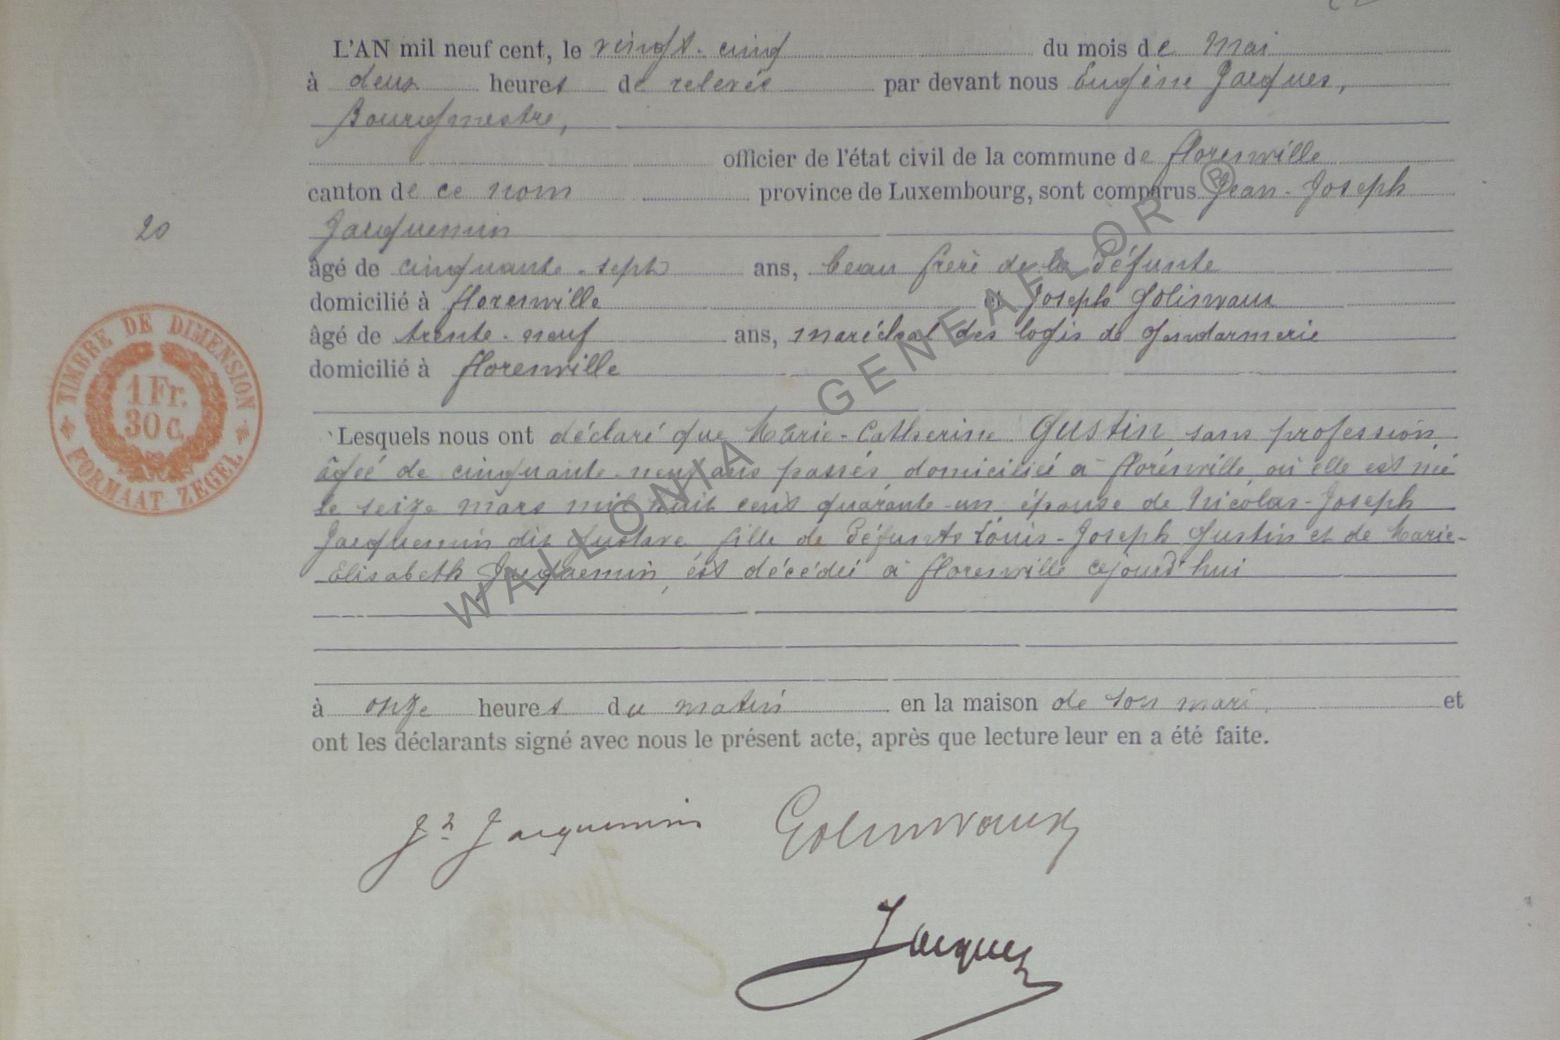 L'AN mil neuf cent, le vingt-cinq du mois de Mai
à deux heures de relevée par devant nous Eugène Jacques,
Bourgmestre,
officier de l'état civil de la commune de florenville
canton de ce nom province de Luxembourg, sont comparus Jean-Joseph
20
Jacquemin
âgé de cinquante-sept ans, beau frère de la défunte
domicilié à florenville et Joseph Golinvaux
âgé de trente-neuf ans, maréchal des logis de gendarmerie
domicilié à florenville
Lesquels nous ont déclaré que Marie-Catherine Gustin sans profession
âgée de cinquante-neuf ans passés domiciliée à florenville où elle est née
le seize mars mil huit cent quarante-un épouse de Nicolas-Joseph
Jacquemin dit Gustave fille de défunts Louis-Joseph Gustin et de Marie-
Elisabeth Jacquemin, est décédée à florenville cejourd'hui
à onze heures du matin en la maison de son mari et
ont les déclarants signé avec nous le présent acte, après que lecture leur en a été faite.
Jh Jacquemin Golinvaux
Jacques
TIMBRE DE DIMENSION
1 Fr.
30 c.
FORMAAT ZEGEL
WALLONIA GENEAFLOR ®